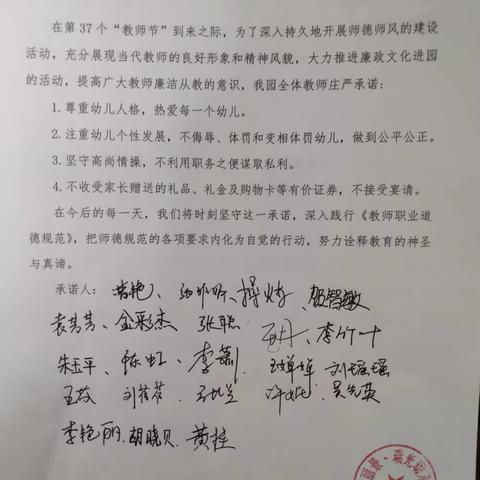 在第37个“教师节”到来之际，为了深入持久地开展师德师风的建设
活动，充分展现当代教师的良好形象和精神风貌，大力推进廉政文化进园
的活动，提高广大教师廉洁从教的意识，我园全体教师庄严承诺：
1.尊重幼儿人格，热爱每一个幼儿。
2.注重幼儿个性发展，不侮辱、体罚和变相体罚幼儿，做到公平公正。
3.坚守高尚情操，不利用职务之便谋取私利。
4.不收受家长赠送的礼品、礼金及购物卡等有价证券，不接受宴请。
在今后的每一天，我们将时刻坚守这一承诺，深入践行《教师职业道
德规范》，把师德规范的各项要求内化为自觉的行动，努力诠释教育的神圣
与真谛。
承诺人： 贺智敏
袁芳芳、金彩杰 张聪 李竹叶
朱玉平、陈虹、李萧 王婵婵 刘瑶瑶
王芬 吴先英
李艳丽.胡晓贝.黄桂